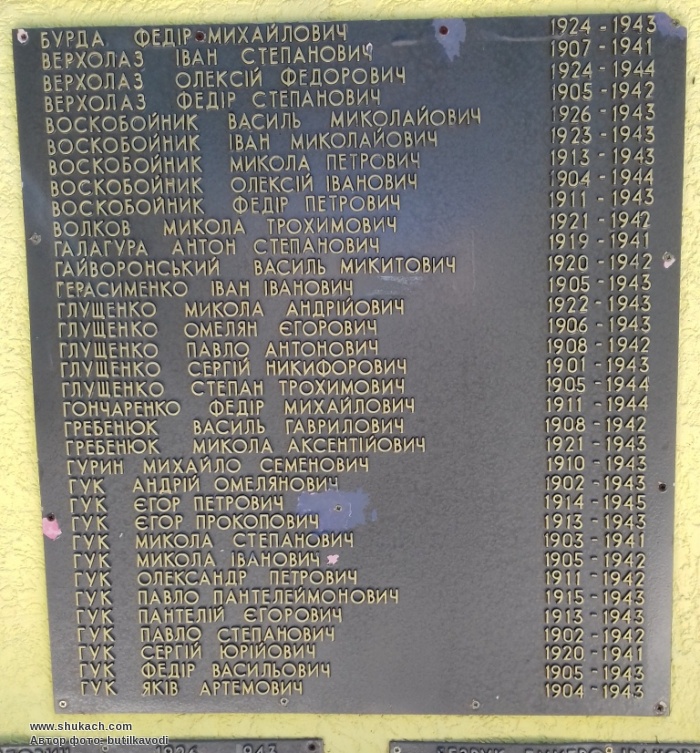 БУРДА ФЕДІР МИХАЙЛОВИЧ 1924 - 1943
ВЕРХОЛАЗ ІВАН СТЕПАНОВИЧ 1907 - 1941
ВЕРХОЛАЗ ОЛЕКСІЙ ФЕДОРОВИЧ 1924 - 1944
ВЕРХОЛАЗ ФЕДІР СТЕПАНОВИЧ 1905 - 1942
ВОСКОБОЙНИК ВАСИЛЬ МИКОЛАЙОВИЧ 1926 - 1943
ВОСКОБОЙНИК ІВАН МИКОЛАЙОВИЧ 1923 - 1943
ВОСКОБОЙНИК МИКОЛА ПЕТРОВИЧ 1913 - 1943
ВОСКОБОЙНИК ОЛЕКСІЙ ІВАНОВИЧ 1904 - 1944
ВОСКОБОЙНИК ФЕДІР ПЕТРОВИЧ 1911 - 1943
ВОЛКОВ МИКОЛА ТРОХИМОВИЧ 1921 - 1942
ГАЛАГУРА АНТОН СТЕПАНОВИЧ 1919 - 1941
ГАЙВОРОНСЬКИЙ ВАСИЛЬ МИКИТОВИЧ 1920 - 1942
ГЕРАСИМЕНКО ІВАН ІВАНОВИЧ 1905 - 1943
ГЛУЩЕНКО МИКОЛА АНДРІЙОВИЧ 1922 - 1943
ГЛУЩЕНКО ОМЕЛЯН ЄГОРОВИЧ 1906 - 1943
ГЛУЩЕНКО ПАВЛО АНТОНОВИЧ 1908 - 1942
ГЛУЩЕНКО СЕРГІЙ НИКИФОРОВИЧ 1901 - 1943
ГЛУЩЕНКО СТЕПАН ТРОХИМОВИЧ 1905 - 1944
ГОНЧАРЕНКО ФЕДІР МИХАЙЛОВИЧ 1911 - 1944
ГРЕБЕНЮК ВАСИЛЬ ГАВРИЛОВИЧ 1908 - 1942
ГРЕБЕНЮК МИКОЛА АКСЕНТІЙОВИЧ 1921 - 1943
ГУРИН МИХАЙЛО СЕМЕНОВИЧ 1910 - 1943
ГУК АНДРІЙ ОМЕЛЯНОВИЧ 1902 - 1943
ГУК ЄГОР ПЕТРОВИЧ 1914 - 1945
ГУК ЄГОР ПРОКОПОВИЧ 1913 - 1943
ГУК МИКОЛА СТЕПАНОВИЧ 1903 - 1941
ГУК МИКОЛА ІВАНОВИЧ 1905 - 1942
ГУК ОЛЕКСАНДР ПЕТРОВИЧ 1911 - 1942
ГУК ПАВЛО ПАНТЕЛЕЙМОНОВИЧ 1915 - 1943
ГУК ПАНТЕЛІЙ ЄГОРОВИЧ 1913 - 1943
ГУК ПАВЛО СТЕПАНОВИЧ 1902 - 1942
ГУК СЕРГІЙ ЮРІЙОВИЧ 1920 - 1941
ГУК ФЕДІР ВАСИЛЬОВИЧ 1905 - 1943
ГУК ЯКІВ АРТЕМОВИЧ 1904 - 1943
www.shukach.com
Автор фото: butilkavodi